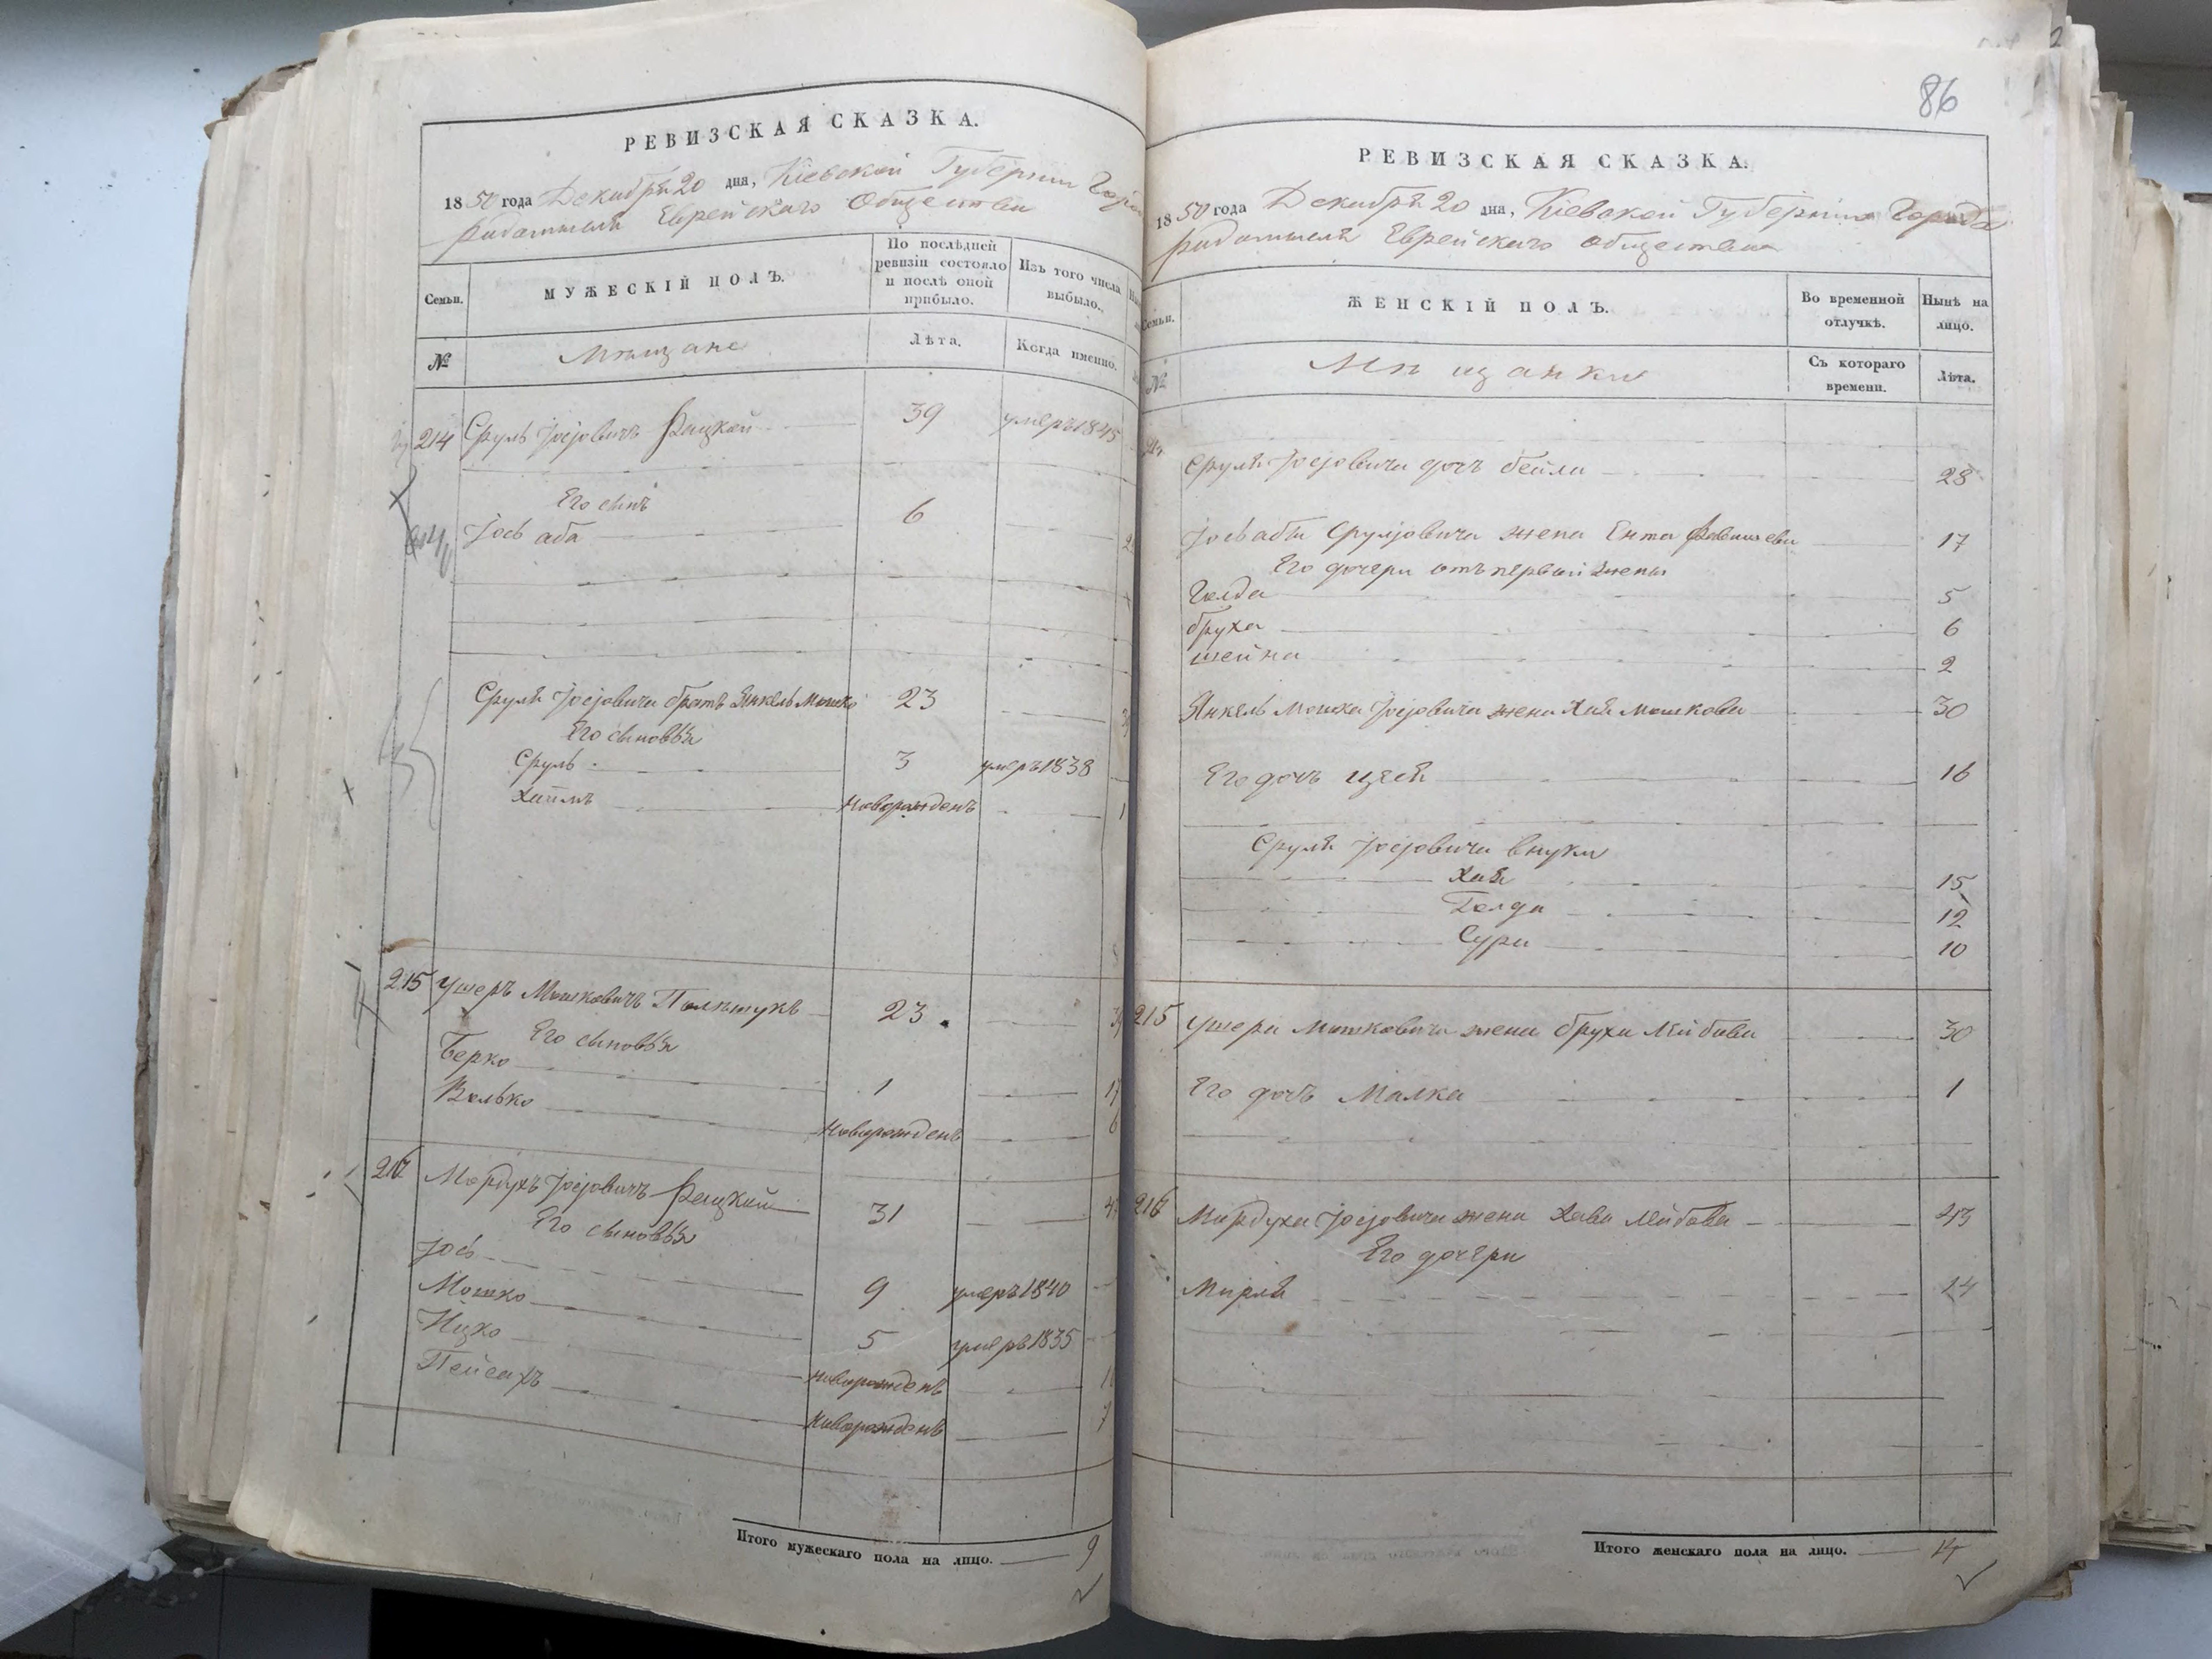 РЕВИЗСКАЯ СКАЗКА.
1850 года Декабря 20 дня, Кіевской Губерніи Горо
Радомысля Еврейскаго Общества
Семьи.
МУЖЕСКІЙ ПОЛЪ.
По послѣдней ревизіи состояло и послѣ оной прибыло.
Изъ того числа выбыло.
№
мѣщане
Лѣта.
Когда именно.
214 Сруль Іосіовичъ Рацкой 39 умеръ 1845
Его сынъ
Іось аба 6
Сруля Іосіовича братъ Янкель Мошко 23
Его сыновья
Сруль 3 умеръ 1838
Хаимъ новорожденъ 1
215 Ушеръ Мошковичъ Полѣтукъ 23
Его сыновья
Берко 1 17
Волько новорожденъ 6
216 Мордухъ Іосіовичъ Рацкой 31
Его сыновья
Іось 9 умеръ 1840
Мошко 5 умеръ 1835
Ицко новорожденъ
Пейсахъ новорожденъ 7
Итого мужескаго пола на лицо. 9
86
РЕВИЗСКАЯ СКАЗКА.
1850 года Декабря 20 дня, Кіевской Губерніи Города
Радомысля Еврейскаго Общества
Семьи.
ЖЕНСКІЙ ПОЛЪ.
Во временной отлучкѣ.
Нынѣ на лицо.
№
Мѣщанки
Съ котораго времени.
Лѣта.
214
Сруля Іосіовича дочь бейла 28
Іось абы Срулiовича жена Ента 17
Его дочери отъ первой жены
Голда 5
бруха 6
шейна 2
Янкель Мошка Іосіовича жена Хая Мошкова 30
Его дочь 16
Сруля Іосіовича внуки
Хая 15
Голда 12
Сура 10
215 Ушера Мошковича жена бруха Лейбова 30
Его дочь Малка 1
216 Мордуха Іосіовича жена Хава Лейбова 43
Его дочери
Мирля 14
Итого женскаго пола на лицо. 14